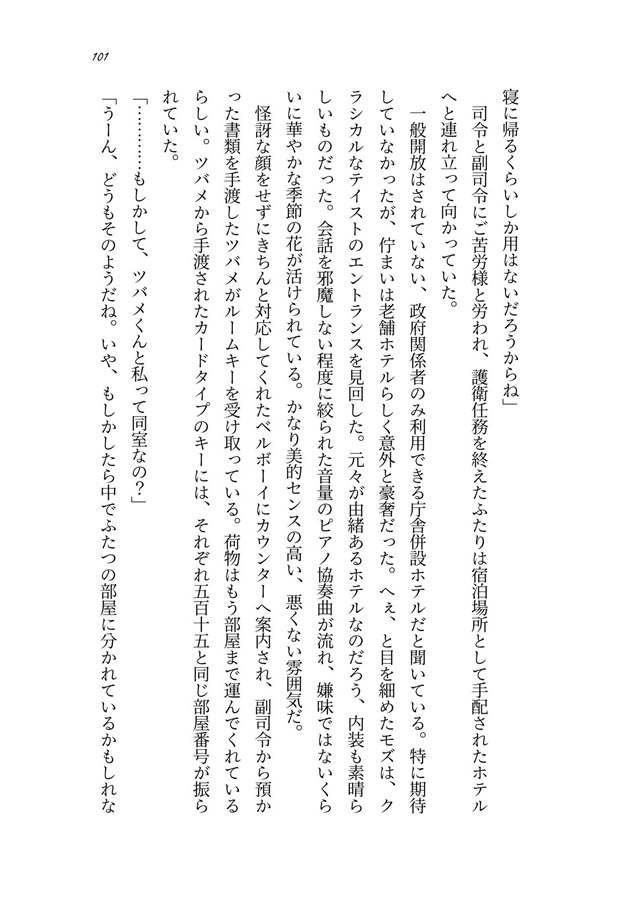 101
寝に帰るくらいしか用はないだろうからね」
　司令と副司令にご苦労様と労われ、護衛任務を終えたふたりは宿泊場所として手配されたホテル
へと連れ立って向かっていた。
　一般開放はされていない、政府関係者のみ利用できる庁舎併設ホテルだと聞いている。特に期待
していなかったが、佇まいは老舗ホテルらしく意外と豪奢だった。へぇ、と目を細めたモズは、ク
ラシカルなテイストのエントランスを見回した。元々が由緒あるホテルなのだろう、内装も素晴ら
しいものだった。会話を邪魔しない程度に絞られた音量のピアノ協奏曲が流れ、嫌味ではないくら
いに華やかな季節の花が活けられている。かなり美的センスの高い、悪くない雰囲気だ。
　怪訝な顔をせずにきちんと対応してくれたベルボーイにカウンターへ案内され、副司令から預か
った書類を手渡したツバメがルームキーを受け取っている。荷物はもう部屋まで運んでくれている
らしい。ツバメから手渡されたカードタイプのキーには、それぞれ五百十五と同じ部屋番号が振ら
れていた。
「…………もしかして、ツバメくんと私って同室なの？」
「うーん、どうもそのようだね。いや、もしかしたら中でふたつの部屋に分かれているかもしれな